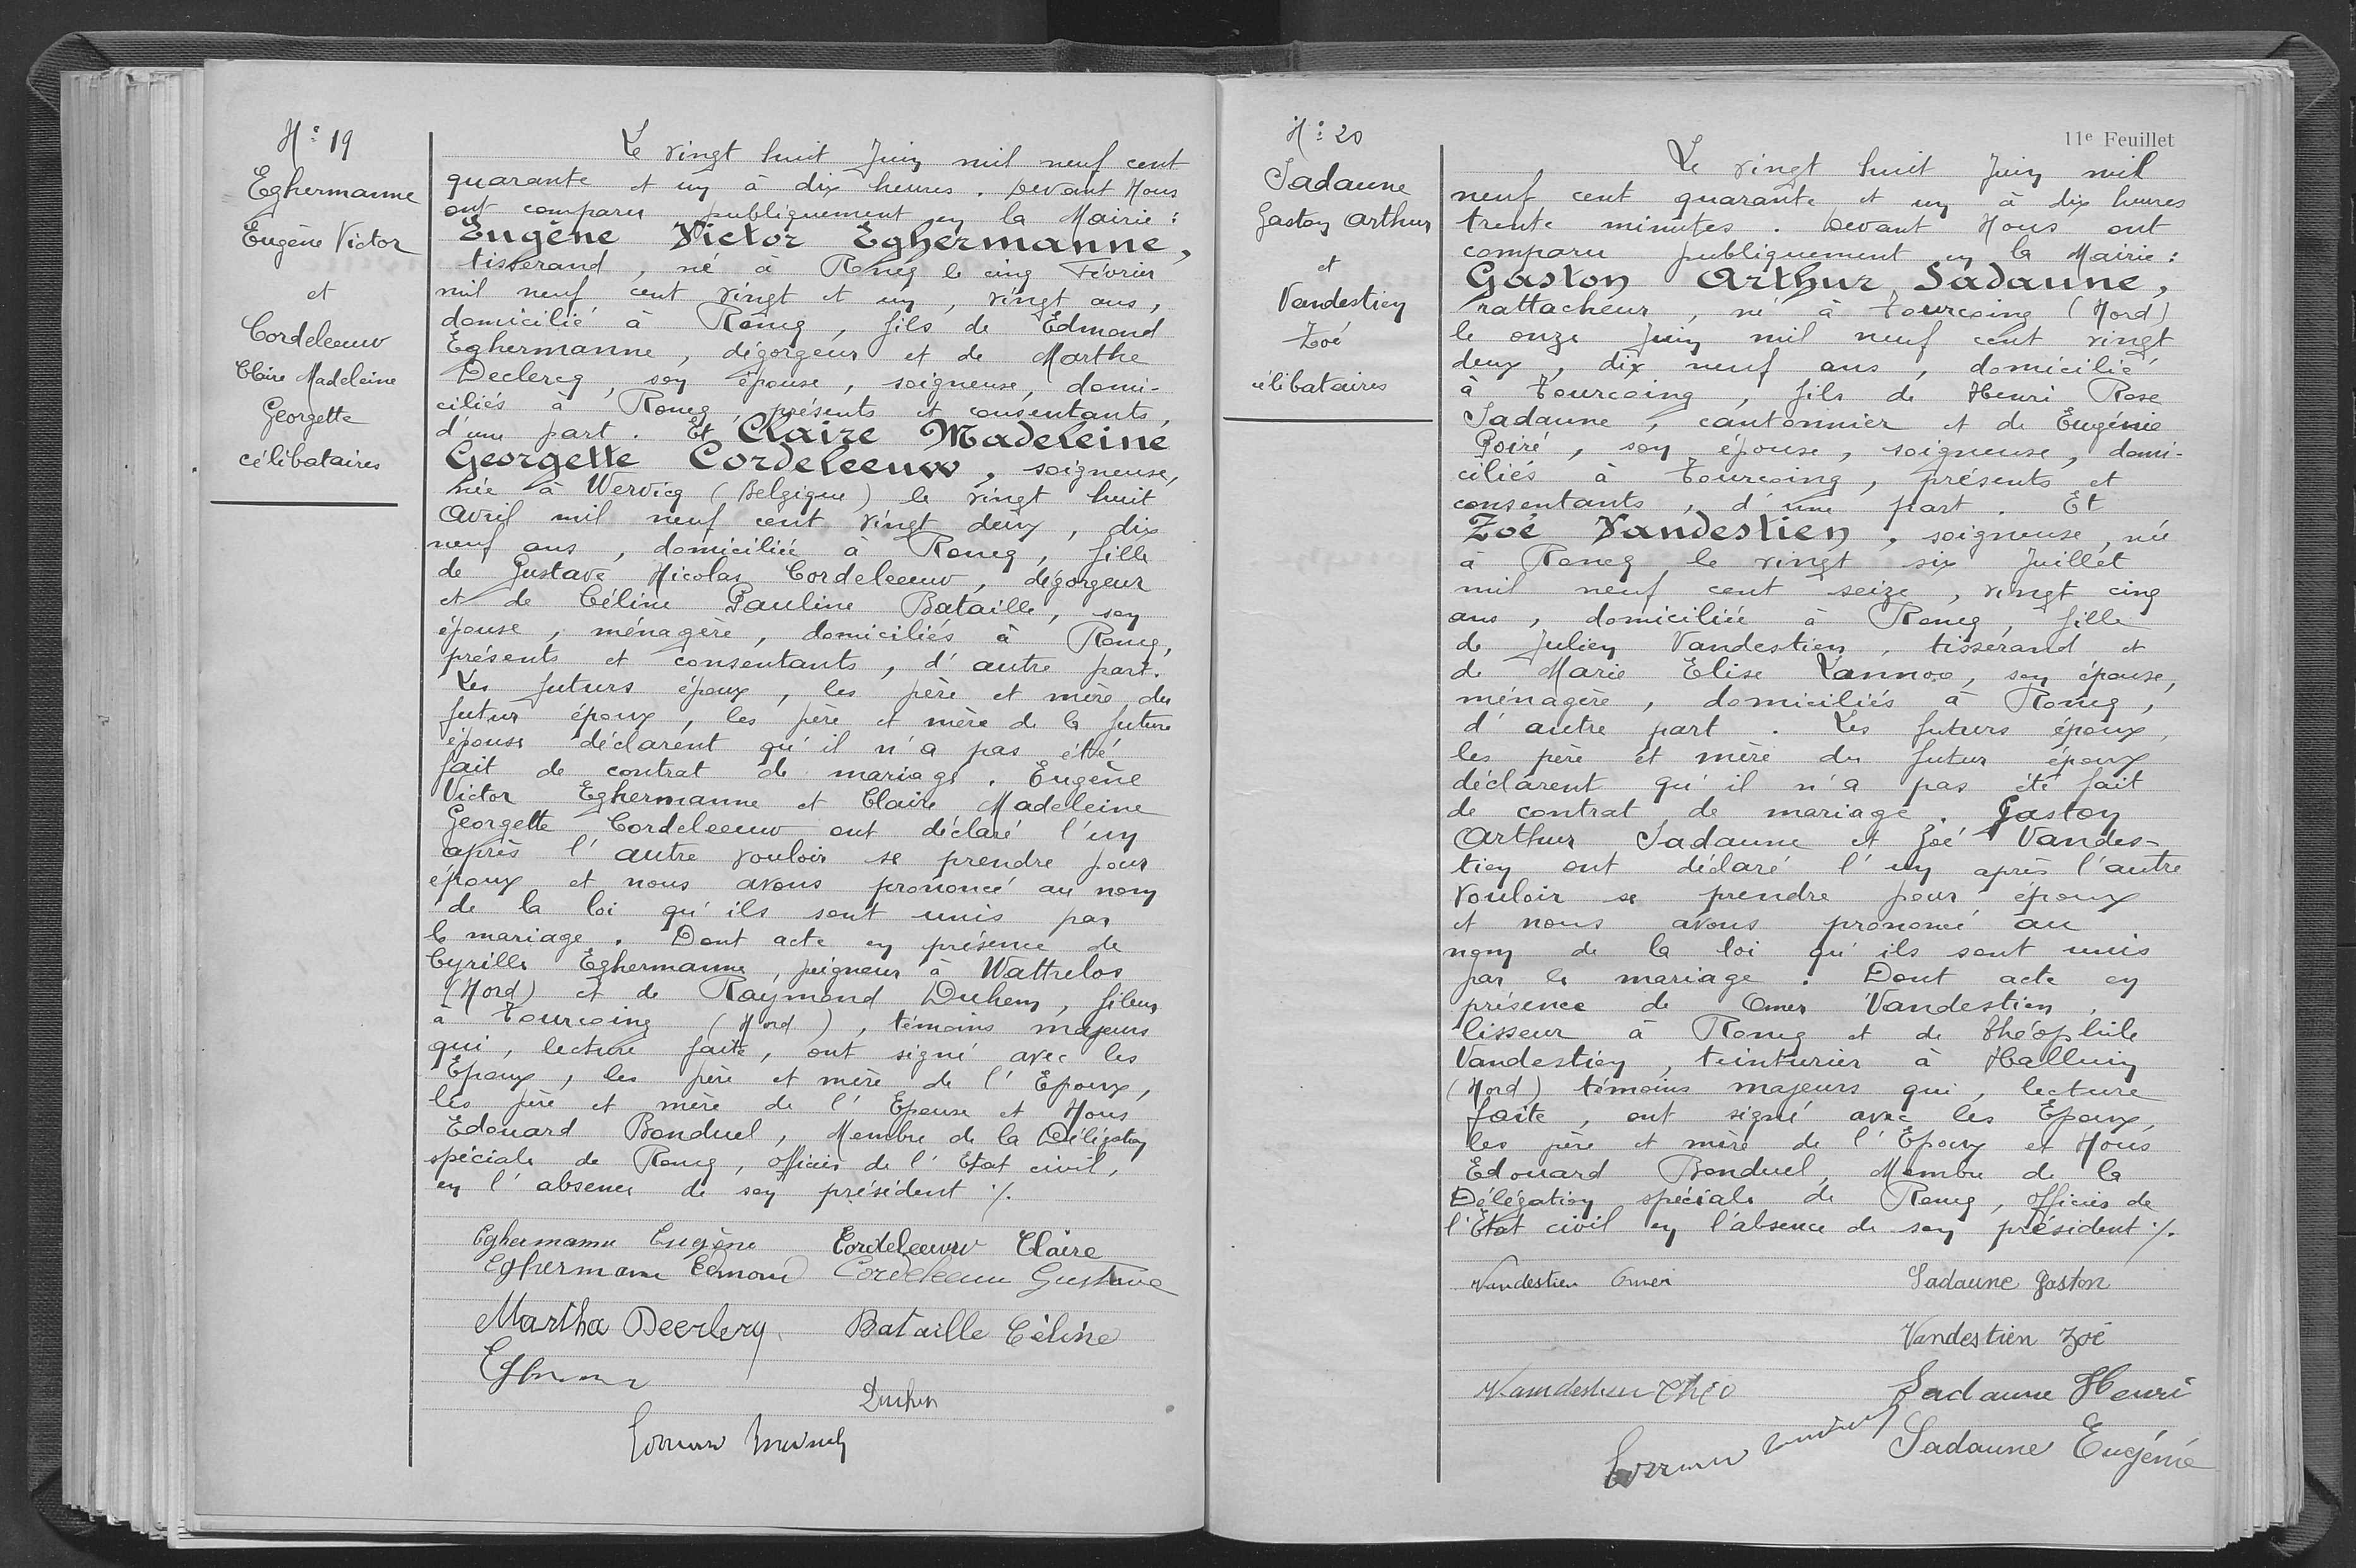 N° 19
Eghermanne
Eugène Victor
et
Cordeleeuw
Claire Madeleine
Georgette
célibataires
Le vingt huit Juin mil neuf cent
quarante et un à dix heures. Devant Nous
ont comparu publiquement en la Mairie :
Eugène Victor Eghermanne,
tisserand, né à Roncq le cinq Février
mil neuf cent vingt et un, vingt ans,
domicilié à Roncq, fils de Edmond
Eghermanne, dégorgeur et de Marthe
Declercq, son épouse, soigneuse, domi-
ciliés à Roncq, présents et consentants,
d'une part. Et Claire Madeleine
Georgette Cordeleeuw, soigneuse,
née à Wervicq (Belgique) le vingt huit
Avril mil neuf cent vingt deux, dix
neuf ans, domiciliée à Roncq, fille
de Gustave Nicolas Cordeleeuw, dégorgeur
et de Céline Pauline Bataille, son
épouse, ménagère, domiciliés à Roncq,
présents et consentants, d'autre part.
Les futurs époux, les père et mère du
futur époux, les père et mère de la future
épouse déclarent qu'il n'a pas étté
fait de contrat de mariage. Eugène
Victor Eghermanne et Claire Madeleine
Georgette Cordeleeuw ont déclaré l'un
après l'autre vouloir se prendre pour
époux et nous avons prononcé au nom
de la loi qu'ils sont unis par
le mariage. Dont acte en présence de
Cyrille Eghermanne, peigneur à Wattrelos
(Nord) et de Raymond Duhem, fileur
à Tourcoing (Nord), témoins majeurs
qui, lecture faite, ont signé avec les
Epoux, les père et mère de l'Epoux,
les père et mère de l'Epouse et Nous
Edouard Bonduel, Membre de la Délégation
spéciale de Roncq, officier de l'Etat civil,
en l'absence de son président ./.
Eghermanne Eugène Cordeleeuw Claire
Eghermann Edmond Cordeleeuw Gustave
Martha Deerlercq Bataille Céline
Duhem
N° 20
Sadaune
Gaston Arthur
et
Vandestien
Zoé
célibataires
11e Feuillet
Le vingt huit Juin mil
neuf cent quarante et un à dix heures
trente minutes. Devant Nous ont
comparu publiquement en la Mairie :
Gaston Arthur Sadaune,
rattacheur, né à Tourcoing (Nord)
le onze Juin mil neuf cent vingt
deux, dix neuf ans, domicilié
à Tourcoing, fils de Henri Rose
Sadaune, cantonnier et de Eugénie
Poiré, son épouse, soigneuse, domi-
ciliés à Tourcoing, présents et
consentants, d'une part. Et
Zoé Vandestien, soigneuse, née
à Roncq le vingt six Juillet
mil neuf cent seize, vingt cinq
ans, domiciliée à Roncq, fille
de Julien Vandestien, tisserand et
de Marie Elise Lannoo, son épouse,
ménagère, domiciliés à Roncq,
d'autre part. Les futurs époux,
les père et mère du futur époux
déclarent qu'il n'a pas été fait
de contrat de mariage. Gaston
Arthur Sadaune et Zoé Vandes-
tien ont déclaré l'un après l'autre
vouloir se prendre pour époux
et nous avons prononcé au
nom de la loi qu'ils sont unis
par le mariage. Dont acte en
présence de Omer Vandestien,
lisseur à Roncq et de Théophile
Vandestien, teinturier à Halluin
(Nord) témoins majeurs qui, lecture
faite, ont signé avec les Epoux,
les père et mère de l'Epoux et Nous
Edouard Bonduel, Membre de la
Délégation spéciale de Roncq, officier de
l'Etat civil en l'absence de son président ./.
Vandestien Omer Sadaune Gaston
Vandestien Zoé
Vandestien Théo Sadaune Henri
Sadaune Eugénie